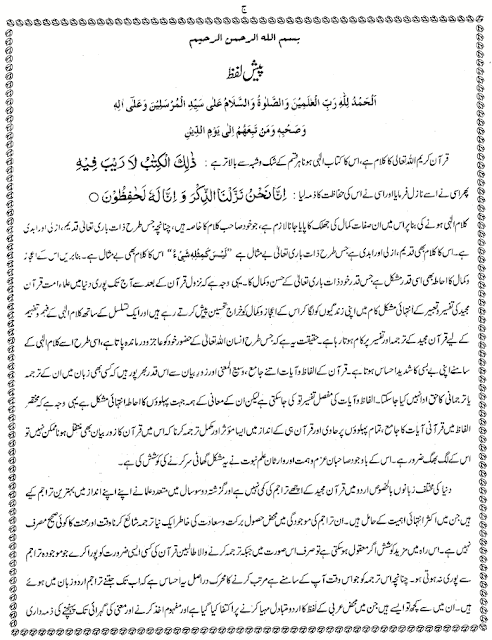 ج
بسم الله الرحمن الرحيم
پیش لفظ
اَلْحَمْدُ لِلّٰهِ رَبِّ الْعٰلَمِيْنَ وَالصَّلٰوةُ وَالسَّلَامُ عَلٰى سَيِّدِ الْمُرْسَلِيْنَ وَعَلٰى اٰلِهٖ
وَصَحْبِهٖ وَمَنْ تَبِعَهُمْ اِلٰى يَوْمِ الدِّيْنِ
قرآن کریم اللہ تعالیٰ کا کلام ہے، اس کا کتاب الٰہی ہونا ہر قسم کے شک و شبہ سے بالاتر ہے : ذٰلِكَ الْكِتٰبُ لَا رَيْبَ فِيْهِ
پھر اسی نے اسے نازل فرمایا اور اسی نے اس کی حفاظت کا ذمہ لیا : اِنَّا نَحْنُ نَزَّلْنَا الذِّكْرَ وَ اِنَّا لَهٗ لَحٰفِظُوْنَ ○
کلام الٰہی ہونے کی بنا پر اس میں ان صفات کمال کی جھلک کا پایا جانا لازم ہے، جو خود صاحب کلام کا خاصہ ہیں، چنانچہ جس طرح ذات باری تعالیٰ قدیم، ازلی اور ابدی
ہے۔ اس کا کلام بھی قدیم، ازلی اور ابدی ہے جس طرح ذات باری تعالیٰ بے مثال ہے ”لَيْسَ كَمِثْلِهٖ شَيْءٌ“ اس کا کلام بھی بے مثال ہے۔ بنابریں اس کے اعجاز
و کمال کا احاطہ بھی اسی قدر مشکل ہے جس قدر خود ذات باری تعالیٰ کے حسن و کمال کا۔ یہی وجہ ہے کہ نزول قرآن کے بعد سے آج تک پوری دنیا میں علماء امت قرآن
مجید کی تفسیر و تعبیر کے انتہائی مشکل کام میں اپنی زندگیوں کو لگا کر اس کے اعجاز و کمال کو خراج تحسین پیش کرتے رہے ہیں اور ایک تسلسل کے ساتھ کلام الٰہی کے فہم و تفہیم
کے لیے قرآن مجید کے ترجمہ اور تفسیر پر کام ہوتا رہا ہے۔ حقیقت یہ ہے کہ جس طرح انسان اللہ تعالیٰ کے حضور خود کو عاجز و درماندہ پاتا ہے، اسی طرح اسے کلام الٰہی کے
سامنے اپنی بے بسی کا شدید احساس ہوتا ہے۔ قرآن کے الفاظ و آیات اتنے جامع، وسیع المعنی اور زور بیان سے اس قدر بھرپور ہیں کہ کسی بھی زبان میں ان کے ترجمہ
یا ترجمانی کا حق ادا نہیں کیا جا سکتا۔ الفاظ و آیات کی مفصل تفسیر تو کی جا سکتی ہے لیکن ان کے معانی کے ہمہ جہت پہلوؤں کا احاطہ انتہائی مشکل ہے یہی وجہ ہے کہ مختصر
الفاظ میں قرآنی آیات کا جامع، تمام پہلوؤں پر حاوی اور قرآن ہی کے انداز میں ایسا مؤثر اور مکمل ترجمہ کرنا کہ اس میں قرآن کا زور بیان بھی منتقل ہو نا ممکن نہیں تو
اس کے لگ بھگ ضرور ہے۔ اس کے باوجود صاحبان عزم و ہمت اور وارثان علم نبوت نے یہ مشکل گھاٹی سر کرنے کی کوشش کی ہے۔
دنیا کی مختلف زبانوں بالخصوص اردو میں قرآن مجید کے اچھے تراجم کی کمی نہیں ہے اور گزشتہ دو سو سال میں متعدد علما نے اپنے اپنے انداز میں بہترین تراجم کیے
ہیں جن میں اکثر انتہائی اہمیت کے حامل ہیں۔ ان تراجم کی موجودگی میں محض حصول برکت و سعادت کی خاطر ایک نیا ترجمہ شائع کرنا وقت اور محنت کا کوئی صحیح مصرف
نہیں ہے۔ اس راہ میں مزید کوشش اگر معقول ہو سکتی ہے تو صرف اس صورت میں جبکہ ترجمہ کرنے والا طالبین قرآن کی کسی ایسی ضرورت کو پورا کرے جو موجودہ تراجم
سے پوری نہ ہوتی ہو۔ چنانچہ اس ترجمہ کو جو اس وقت آپ کے سامنے ہے مرتب کرنے کا محرک دراصل یہ احساس ہے کہ اب تک جتنے تراجم اردو زبان میں ہوئے
ہیں۔ ان میں سے کچھ تو ایسے ہیں جن میں محض عربی کے لفظ کا اردو متبادل مہیا کرنے پر اکتفا کیا گیا ہے اور مفہوم اخذ کرنے اور معنی کی گہرائی تک پہنچنے کی ذمہ داری